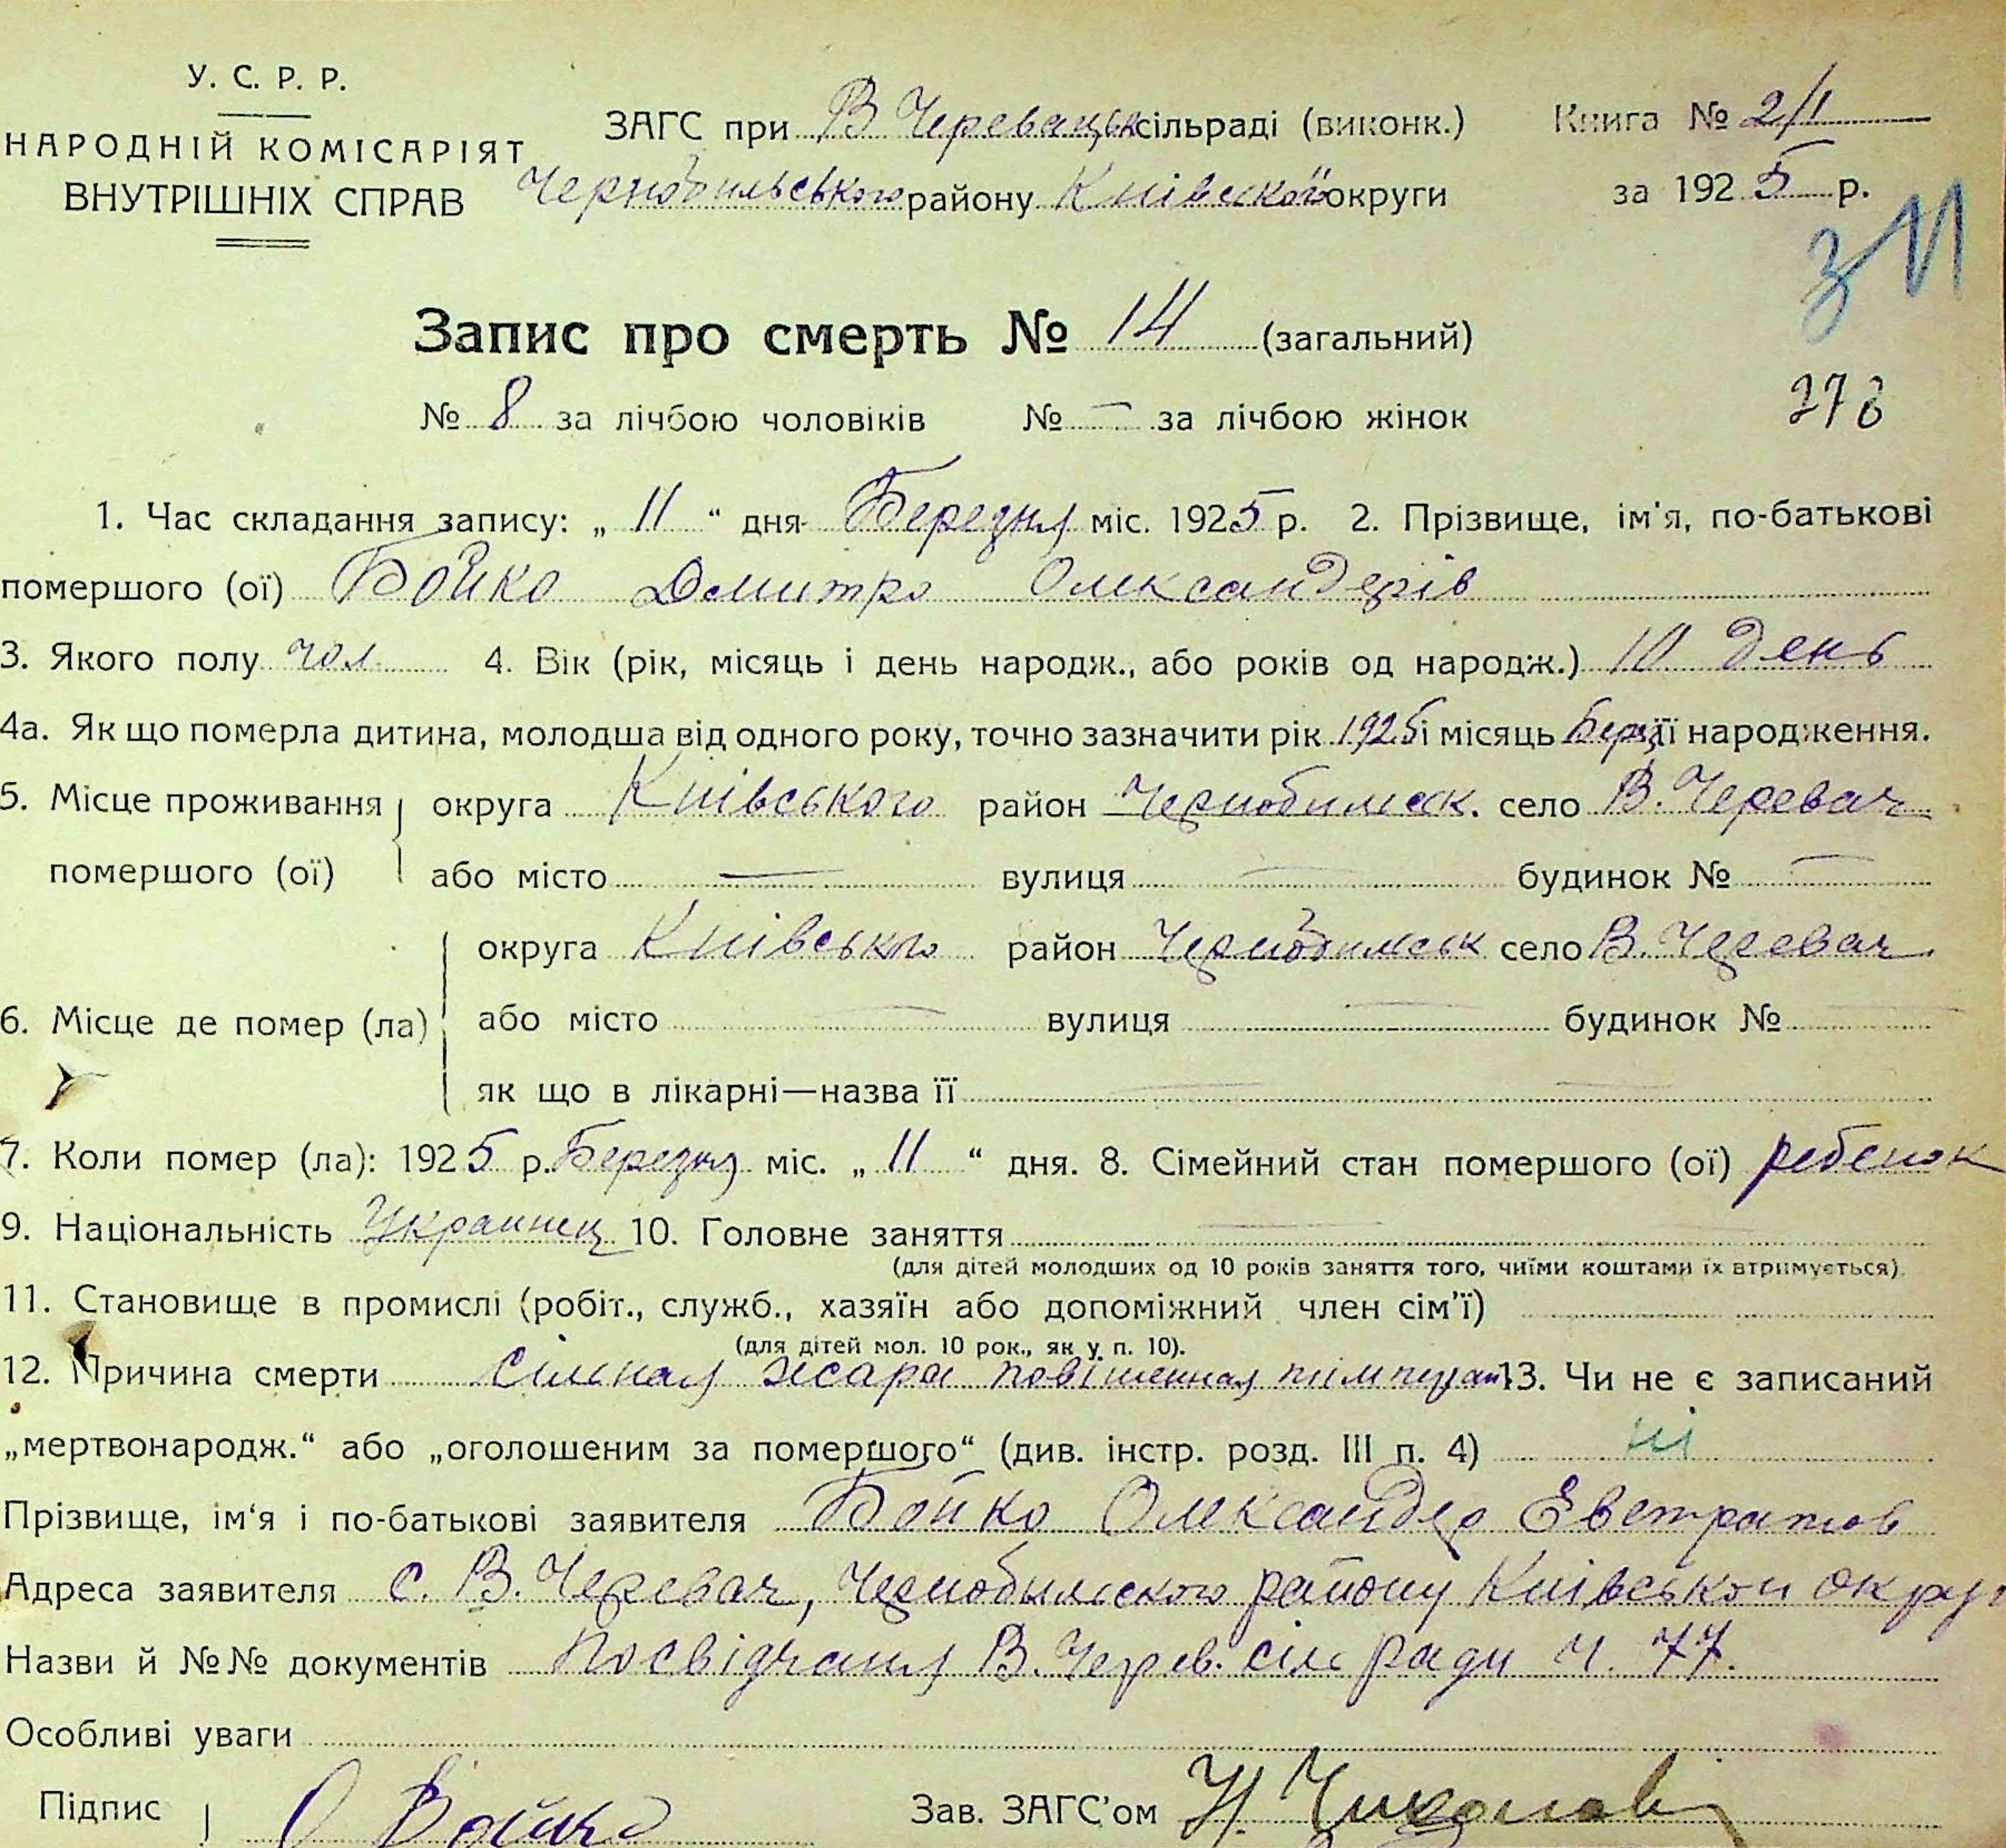 У. С. Р. Р.
НАРОДНІЙ КОМІСАРІЯТ
ВНУТРІШНІХ СПРАВ
ЗАГС при В Черевацьк сільраді (виконк.)
Чернобильського району Київської округи
Книга № 2/1
за 1925 р.
311
Запис про смерть № 14 (загальний)
№ 8 за лічбою чоловіків № — за лічбою жінок
278
1. Час складання запису: „ 11 “ дня Березня міс. 1925 р. 2. Прізвище, ім'я, по-батькові
помершого (ої) Бойко Дмитро Олександерів
3. Якого полу чол 4. Вік (рік, місяць і день народж., або років од народж.) 10 день
4а. Як що померла дитина, молодша від одного року, точно зазначити рік 1925 і місяць Берез її народження.
5. Місце проживання помершого (ої) округа Київського район Чернобильск. село В. Черевач
або місто — вулиця — будинок № —
6. Місце де помер (ла) округа Київського район Чернобильськ село В. Черевач
або місто — вулиця — будинок № —
як що в лікарні—назва її — —
7. Коли помер (ла): 1925 р. Березня міс. „ 11 “ дня. 8. Сімейний стан помершого (ої) ребенок
9. Національність Украинец 10. Головне заняття —
(для дітей молодших од 10 років заняття того, чиїми коштами їх втримується).
11. Становище в промислі (робіт., служб., хазяїн або допоміжний член сім'ї)
(для дітей мол. 10 рок., як у п. 10).
12. Причина смерти сильная жара повішенная 13. Чи не є записаний
„мертвонародж.“ або „оголошеним за помершого“ (див. інстр. розд. III п. 4) ні
Прізвище, ім'я і по-батькові заявителя Бойко Олександер Евстратов
Адреса заявителя с. В. Черевач, Чернобыльского району Київськои округ
Назви й №№ документів Посвідчання В. Черев. сіль ради ч. 77.
Особливі уваги
Підпис О Бойко Зав. ЗАГС'ом